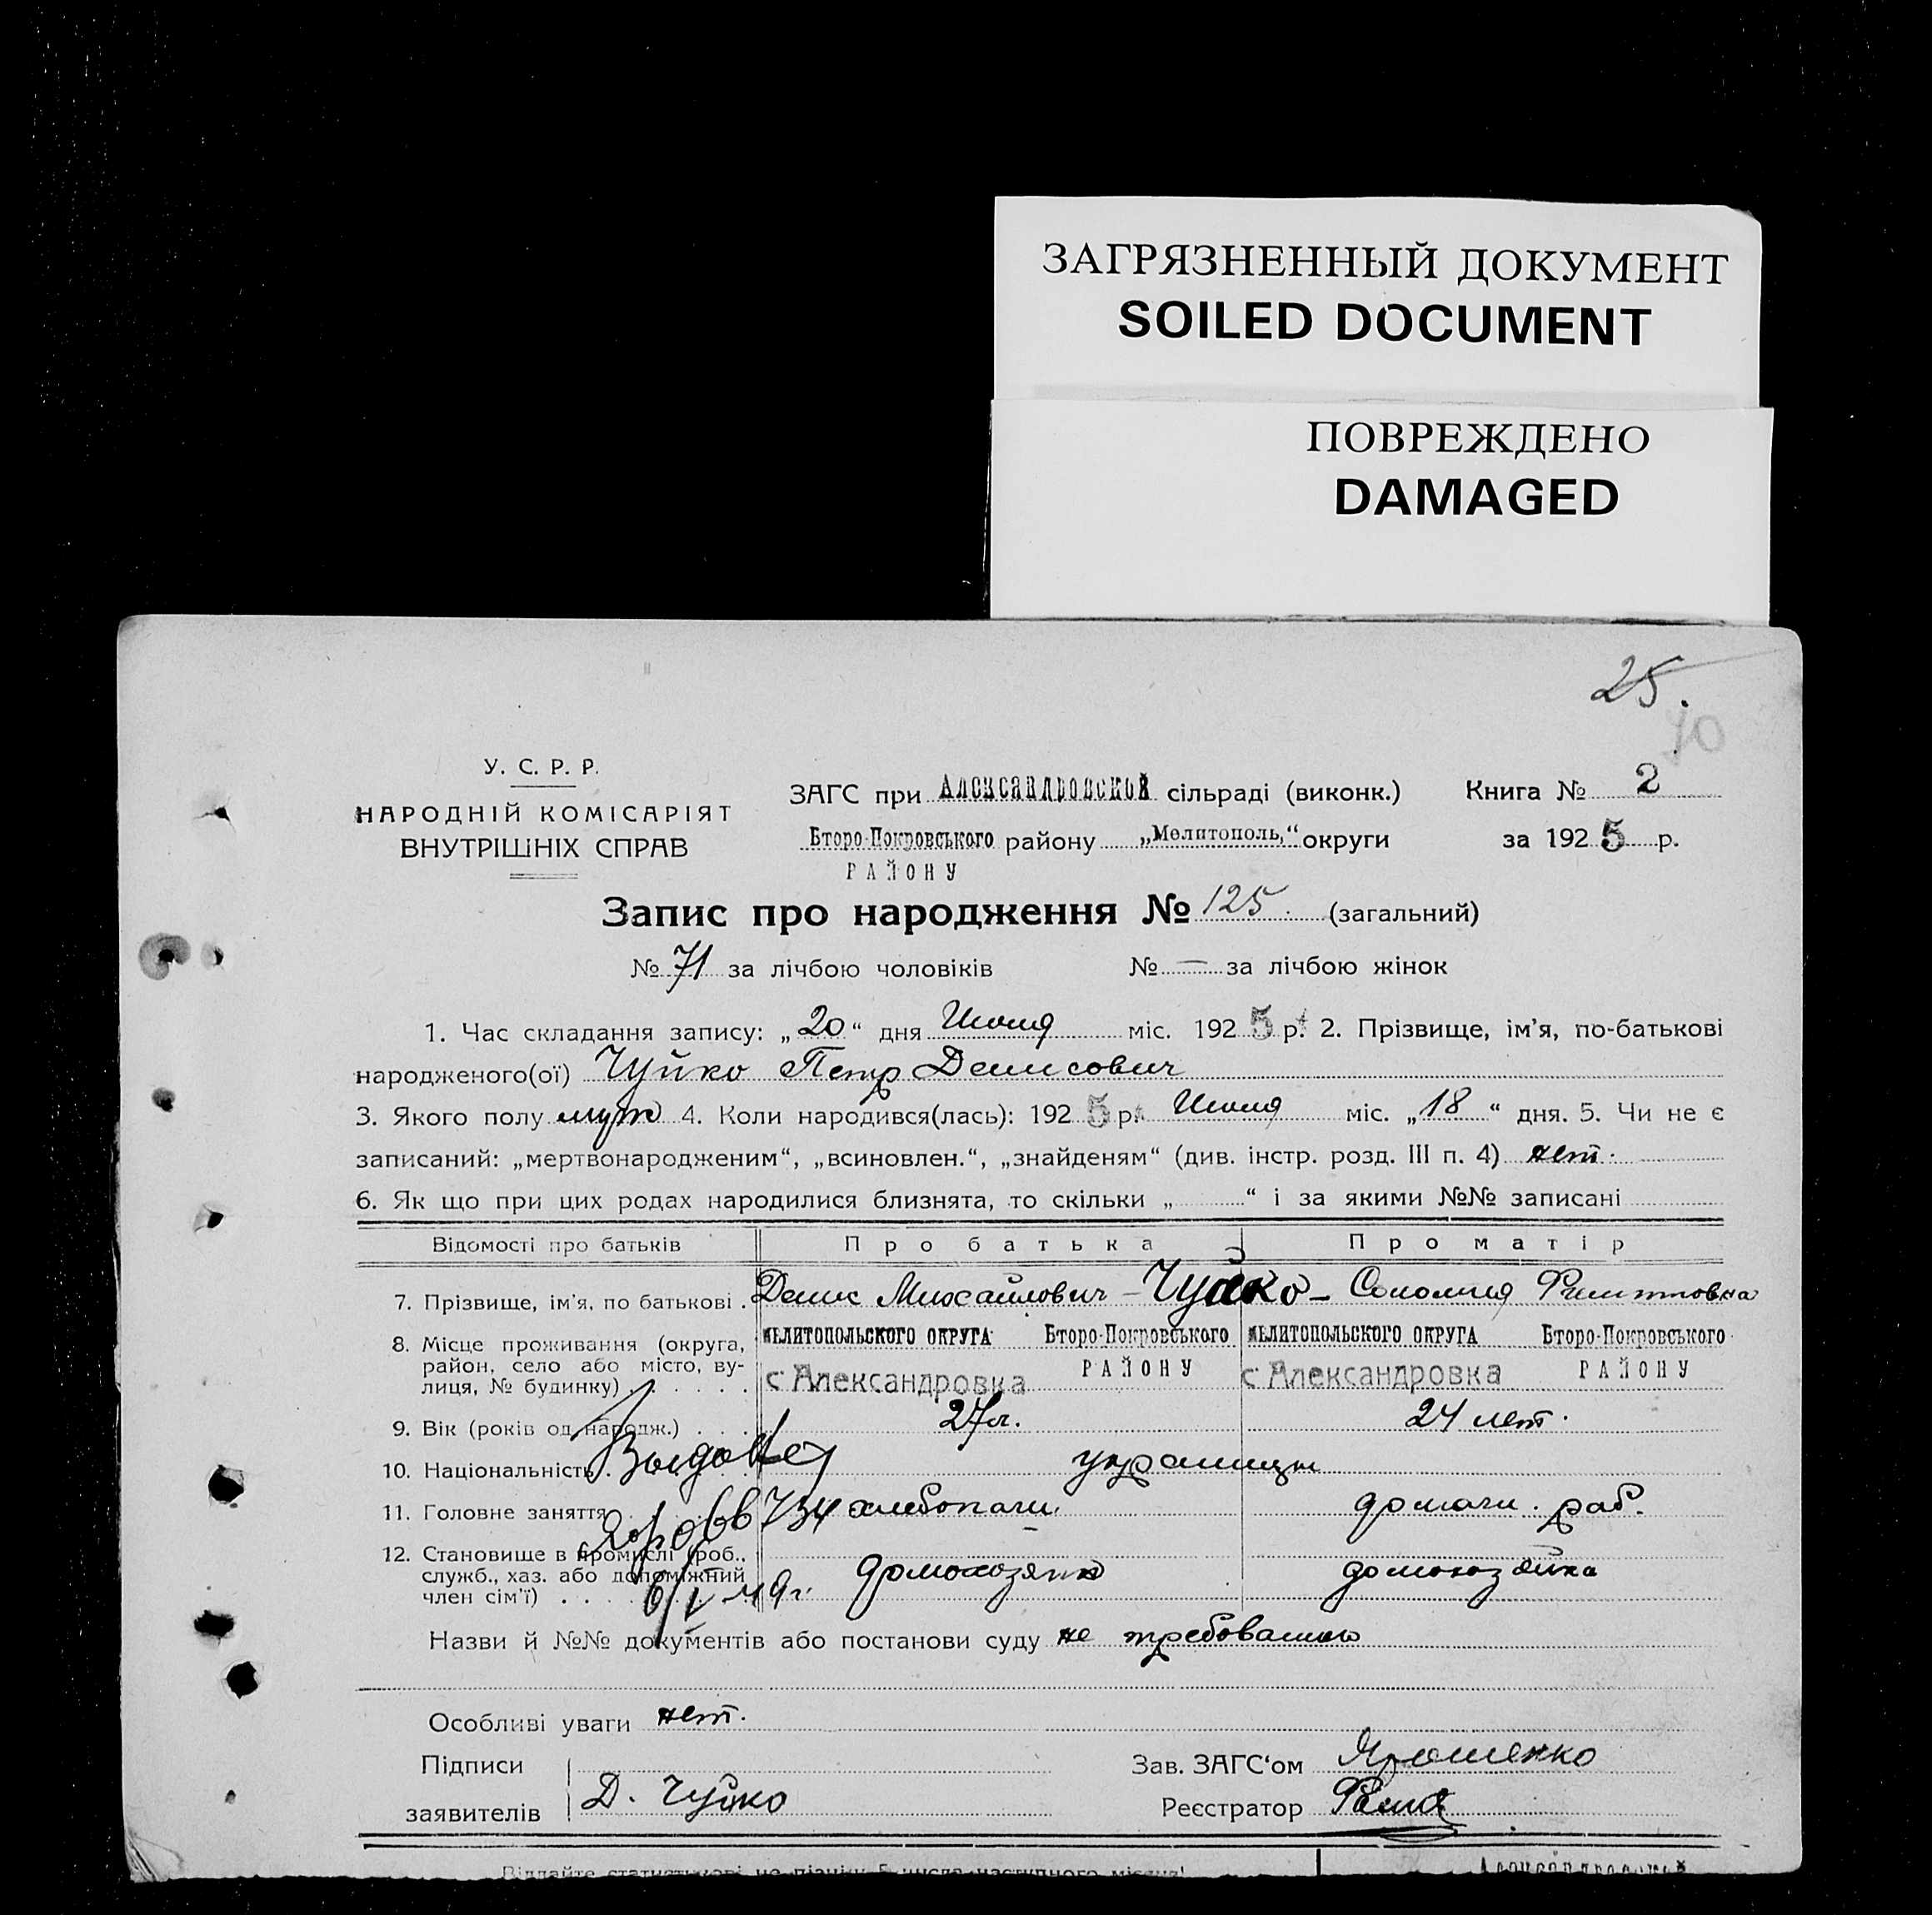 ЗАГРЯЗНЕННЫЙ ДОКУМЕНТ
SOILED DOCUMENT
ПОВРЕЖДЕНО
DAMAGED
25.
10
У. С. Р. Р.
НАРОДНІЙ КОМІСАРІЯТ
ВНУТРІШНІХ СПРАВ
ЗАГС при Александровской сільраді (виконк.) Книга № 2
Второ-Покровського району „Мелитополь,“ округи за 1925 р.
РАЙОНУ
Запис про народження № 125. (загальний)
№ 71 за лічбою чоловіків № — за лічбою жінок
1. Час складання запису: „20“ дня Июля міс. 1925 р. 2. Прізвище, ім’я, по-батькові
народженого(ої) Чуйко Петр Денисович
3. Якого полу муж 4. Коли народився(лась): 1925 р. Июля міс. „18“ дня. 5. Чи не є
записаний: „мертвонародженим“, „всиновлен.“, „знайденям“ (див. інстр. розд. III п. 4) нет.
6. Як що при цих родах народилися близнята, то скільки „ “ і за якими №№ записані
Відомості про батьків Про батька Про матір
7. Прізвище, ім’я, по батькові . Денис Михайлович – Чуйко – Соломия Филипповна
8. Місце проживання (округа, МЕЛИТОПОЛЬСКОГО ОКРУГА Второ-Покровського МЕЛИТОПОЛЬСКОГО ОКРУГА Второ-Покровського
район, село або місто, ву- с. Александровка РАЙОНУ с. Александровка РАЙОНУ
лиця, № будинку) . . . . . .
9. Вік (років од народж.) . . . 27 л. 24 лет.
10. Національність . . . . . украинцы
Выдано
11. Головне заняття хлебопаш. домашн. раб.
734
12. Становище в промислі (роб., домохозяин домохозяйка
служб., хаз. або допоміжний
член сім’ї) . . . . . . .
6/V–49 г.
Назви й №№ документів або постанови суду не требовалось
Особливі уваги нет.
Підписи Зав. ЗАГС‘ом Ярошенко
заявителів Д. Чуйко Реєстратор
Александровской